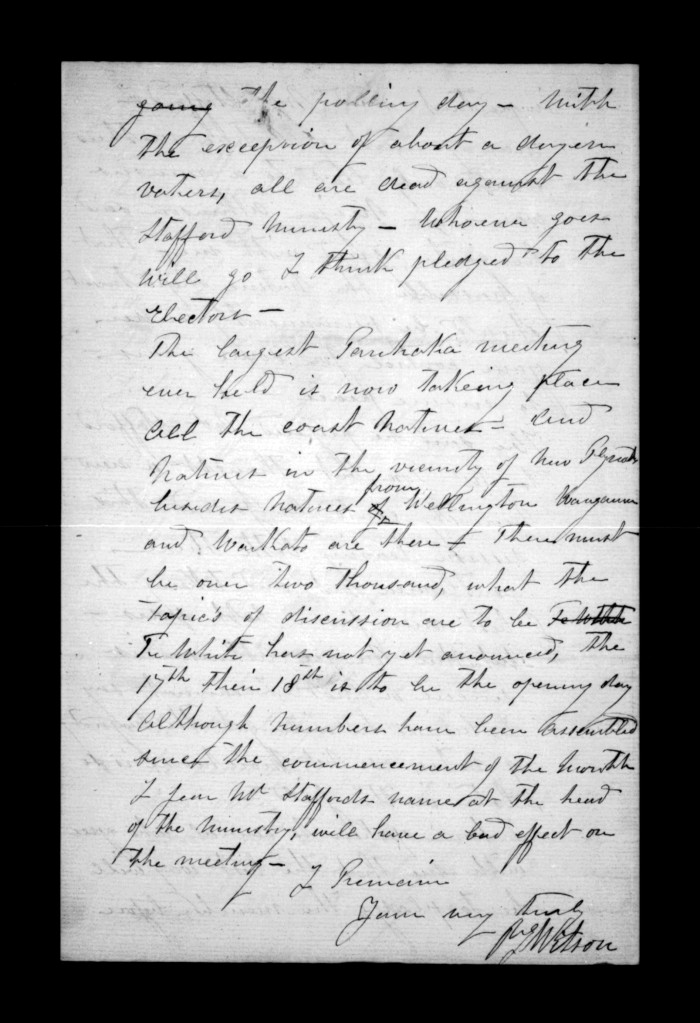 going The polling day — With
the exception of about a dozen
voters, all are dead against the
Stafford Ministry — Whoever goes
will go I think pledged to the
Electors —
The largest Parihaka meeting
ever held is now takeing place
all the coast Natives — and
Natives in the vicinity of New Plymouth
besides Natives from Wellington Wanganui
and Waikato are there — There must
be over two thousand, what the
topics of discussion are to be Te Whiti
Te Whiti has not yet anounced, the
17th their 18th is to be the opening day
although numbers have been assembled
since the commencement of the month
I fear Mr Staffords name at the head
of the Ministry, will have a bad effect on
the meeting — I Remain
Yours very truly
Wilson